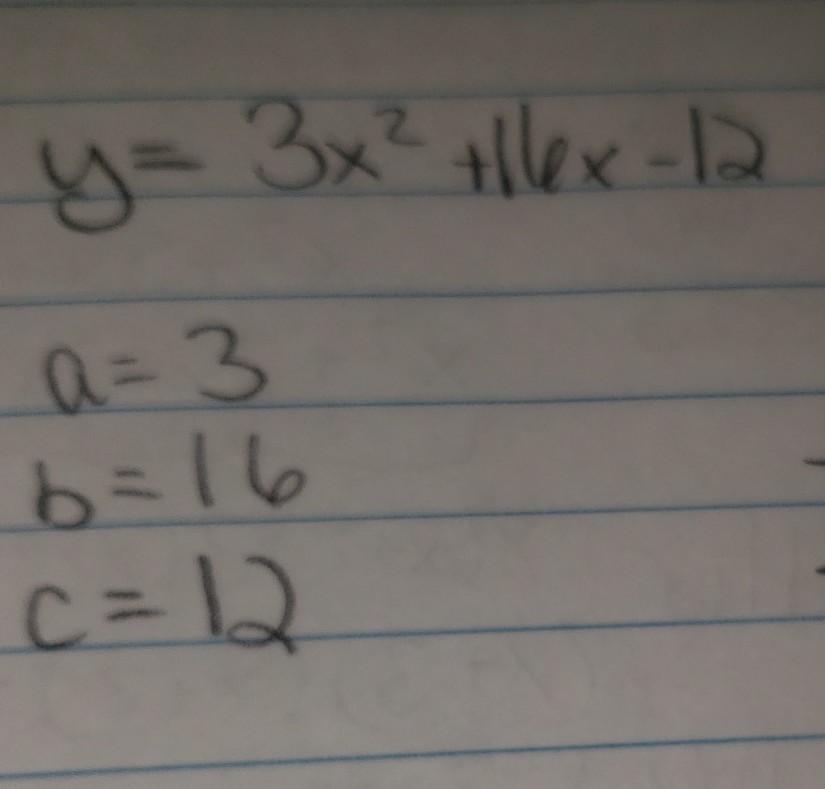 y= 3x² +16x -12
a= 3
b= 16
c= 12